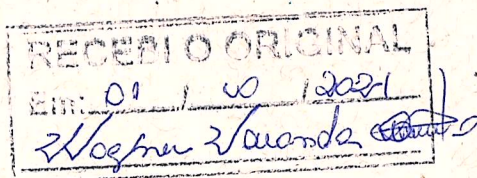 RECEBI O ORIGINAL
Em: 01 / 10 / 2021
Wagner Varanda